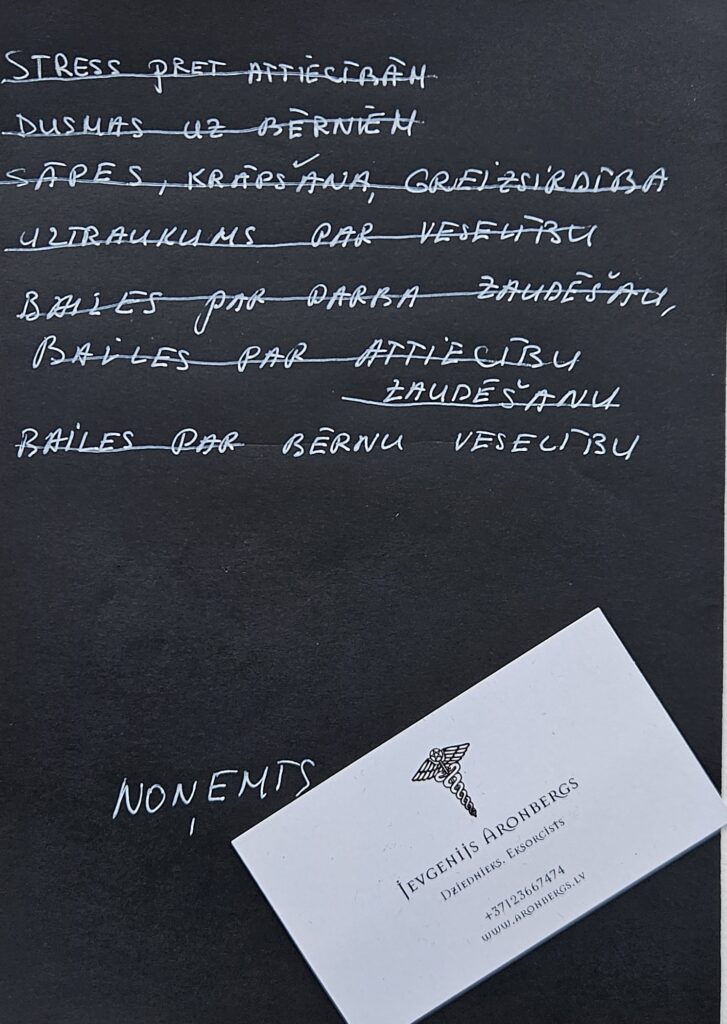 STRESS PRET ATTIECĪBĀM
DUSMAS UZ BĒRNIEM
SĀPES, KRĀPŠANA, GREIZSIRDĪBA
UZTRAUKUMS PAR VESELĪBU
BAILES PAR DARBA ZAUDĒŠAU,
BAILES PAR ATTIECĪBU
ZAUDĒŠANU
BAILES PAR BĒRNU VESELĪBU
NOŅEMTS
JEVGENIJS ARONBERGS
DZIEDNIEKS, EKSORCISTS
+37123667474
WWW.ARONBERGS.LV